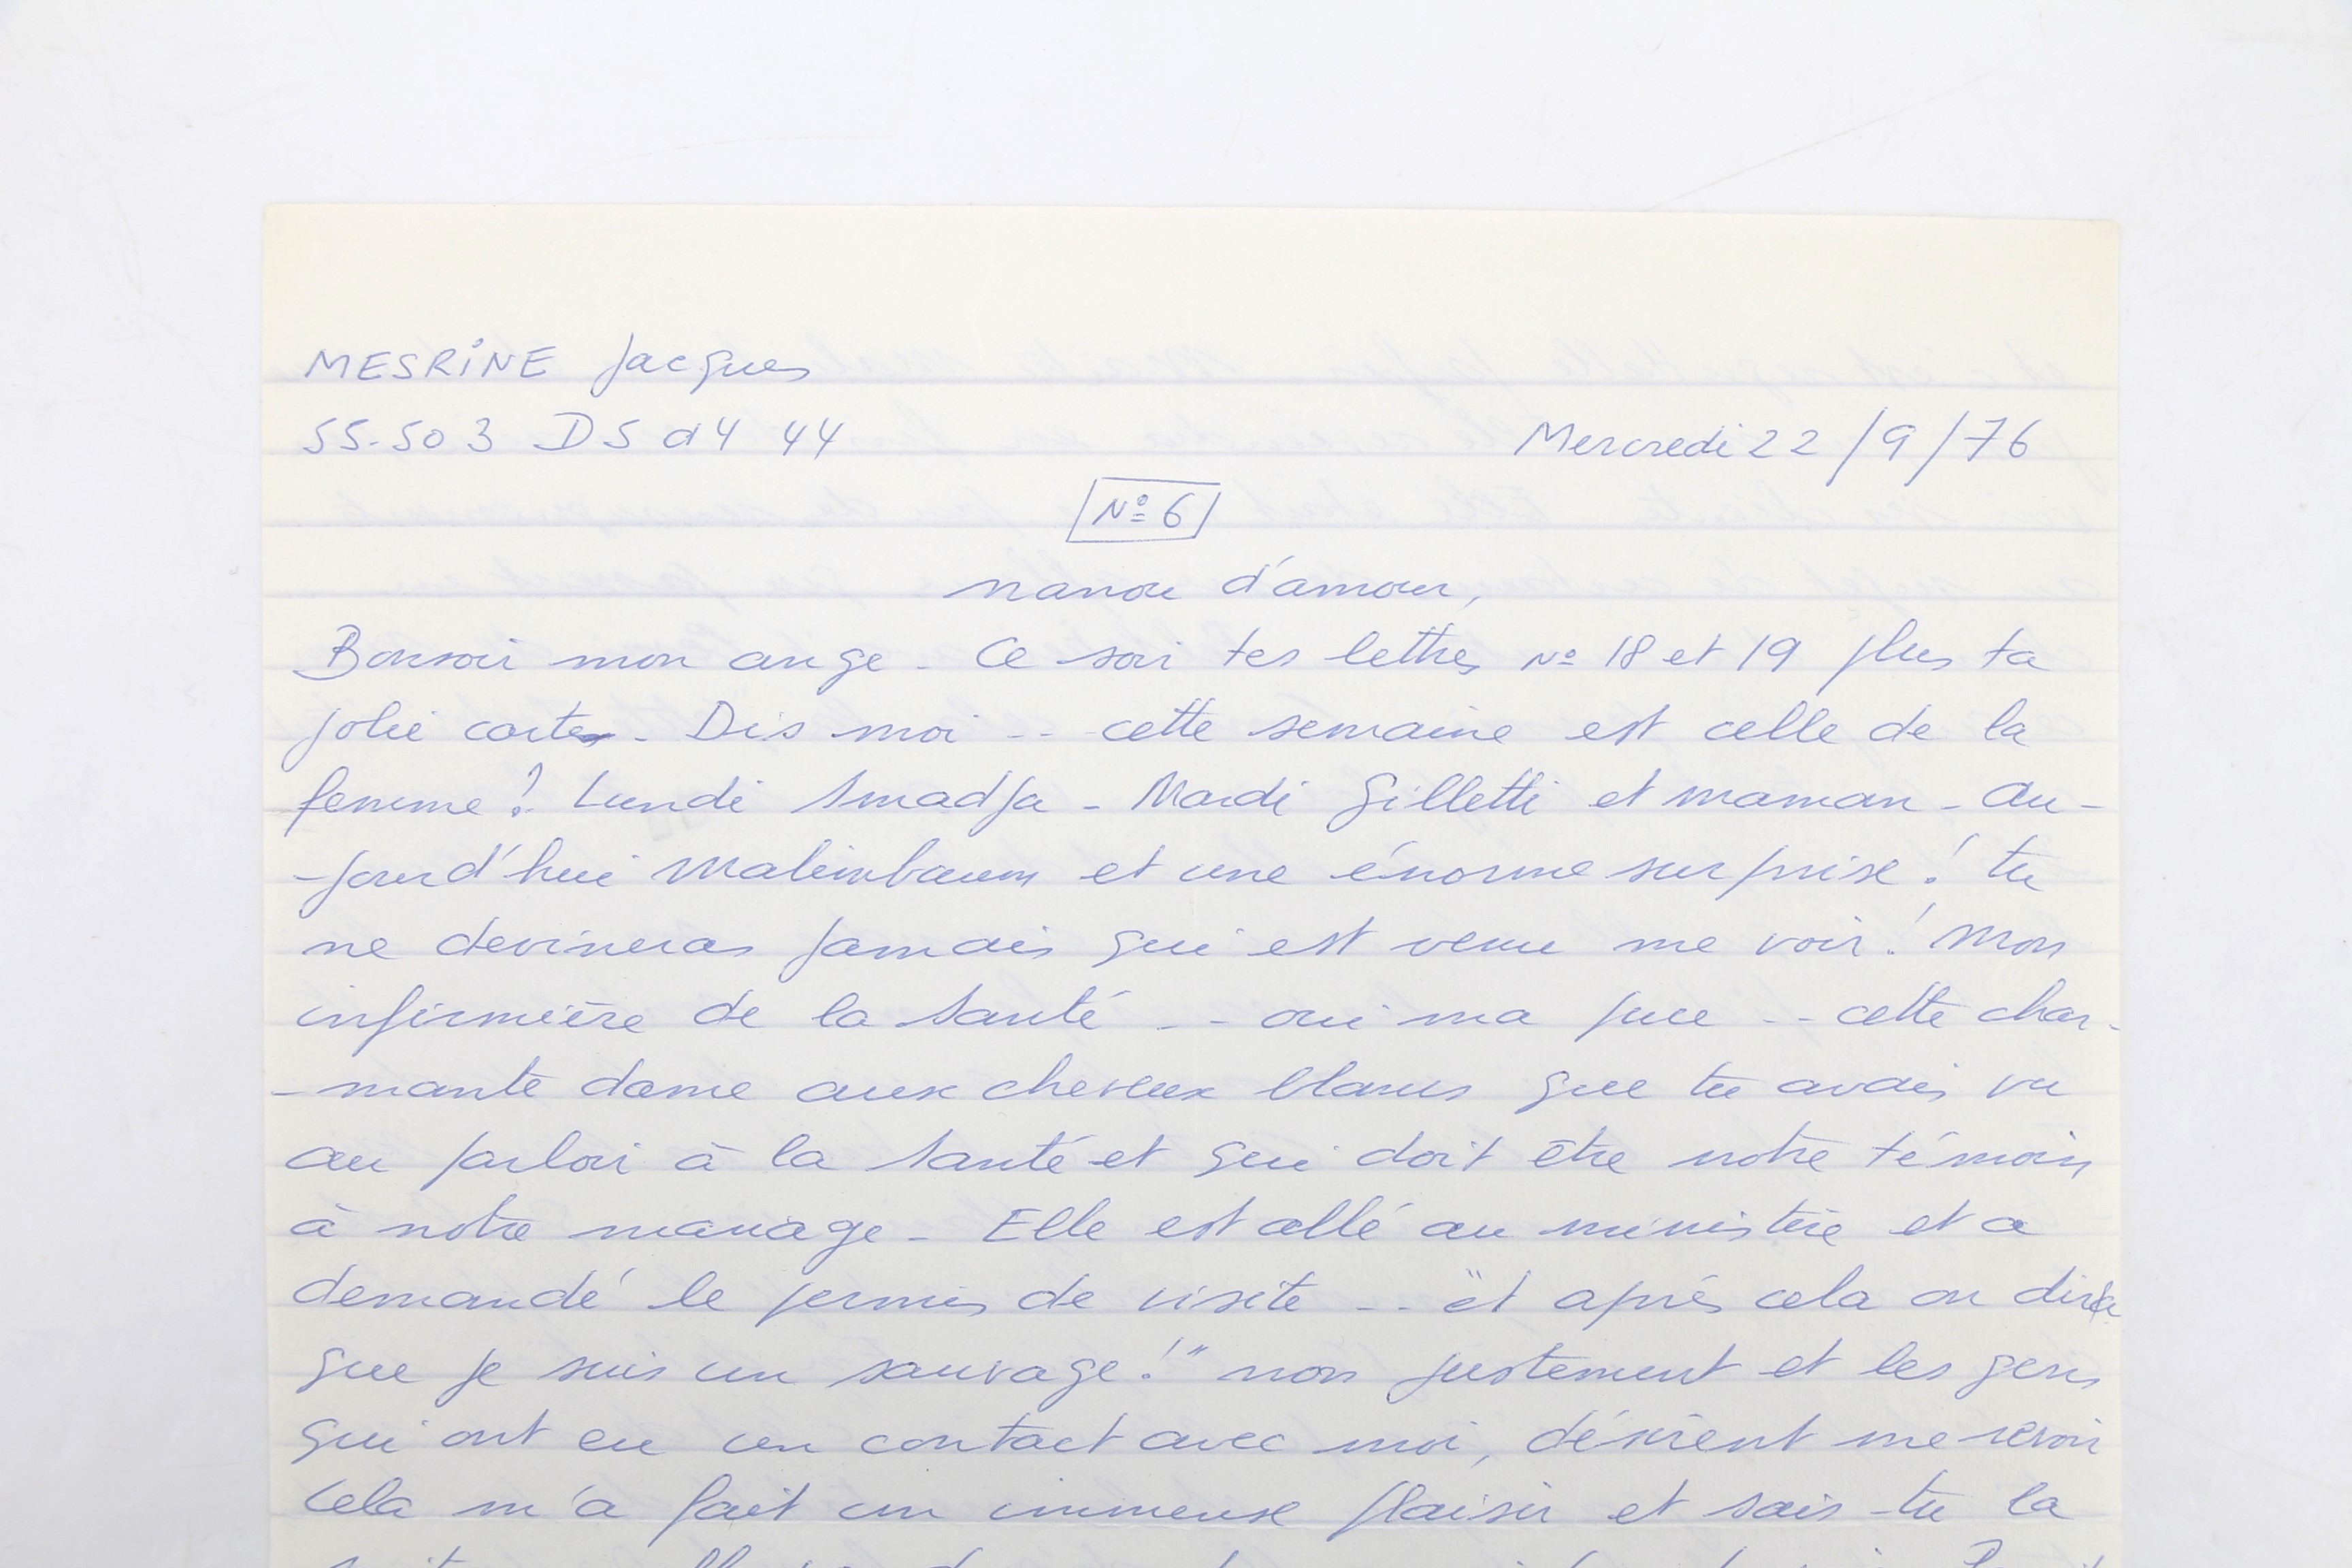 MESRINE Jacques
55-503 D5 d4 44
Mercredi 22/9/76
N° 6
nanou d'amour,
Bonsoir mon ange - Ce soir tes lettres N° 18 et 19 plus ta
jolie carte - Dis moi -- cette semaine est celle de la
femme? Lundi Smadja - Mardi Gilletti et maman - au-
-jourd'hui Malimbaum et une énorme surprise! tu
ne devineras jamais qui est venu me voir! Mon
infirmière de la Santé -- oui ma puce -- cette char-
-mante dame aux cheveux blancs que tu avais vu
au parloir à la Santé et qui doit être notre témoin
à notre mariage - Elle est allé au ministère et a
demandé le permis de visite -- "et après cela on dira
que je suis un sauvage!" non justement et les gens
qui ont eu un contact avec moi, désirent me revoir
Cela m'a fait un immense plaisir et sais-tu la